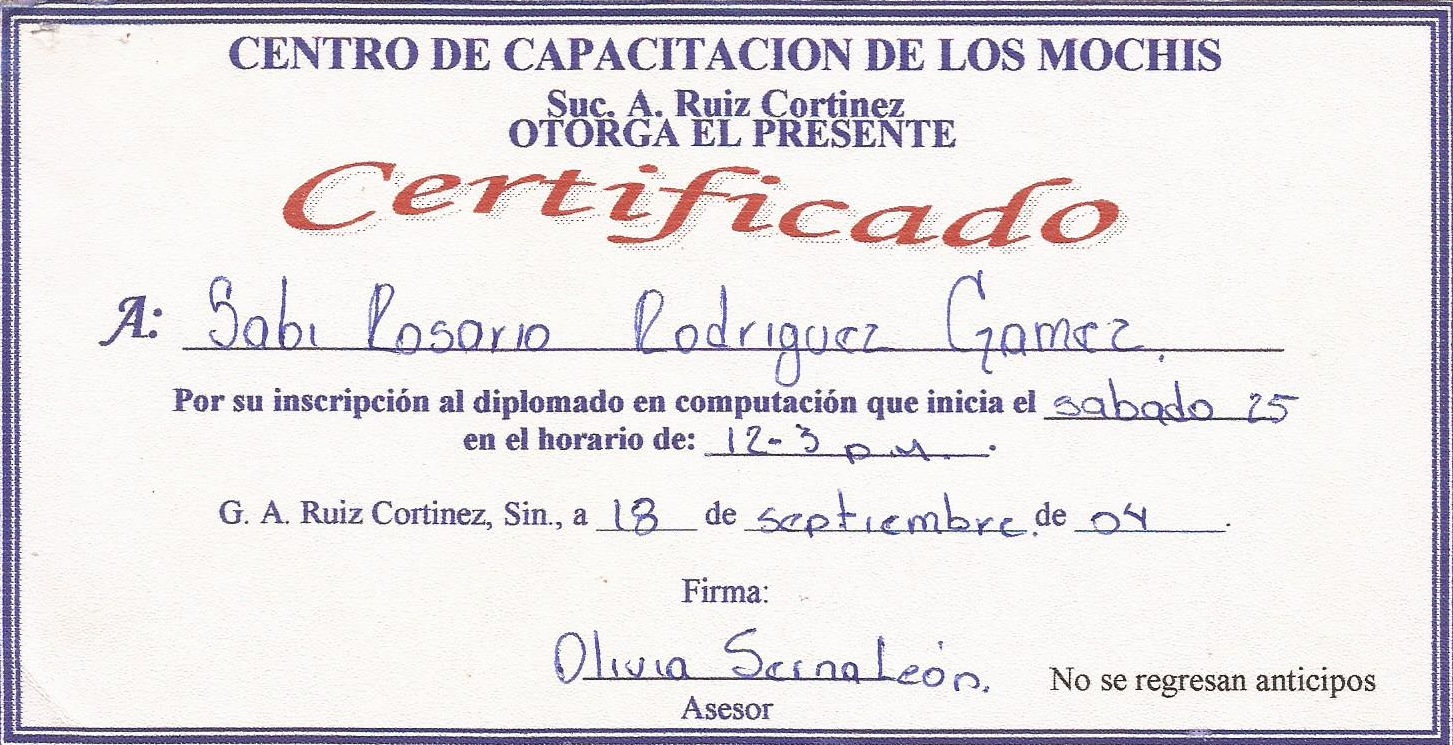 CENTRO DE CAPACITACION DE LOS MOCHIS
Suc. A. Ruiz Cortinez
OTORGA EL PRESENTE
Certificado
A: Sabi Rosario Rodriguez Gamez.
Por su inscripción al diplomado en computación que inicia el sabado 25
en el horario de: 12-3 p.m.
G. A. Ruiz Cortinez, Sin., a 18 de septiembre. de 04.
Firma:
Olivia Serna León.
No se regresan anticipos
Asesor